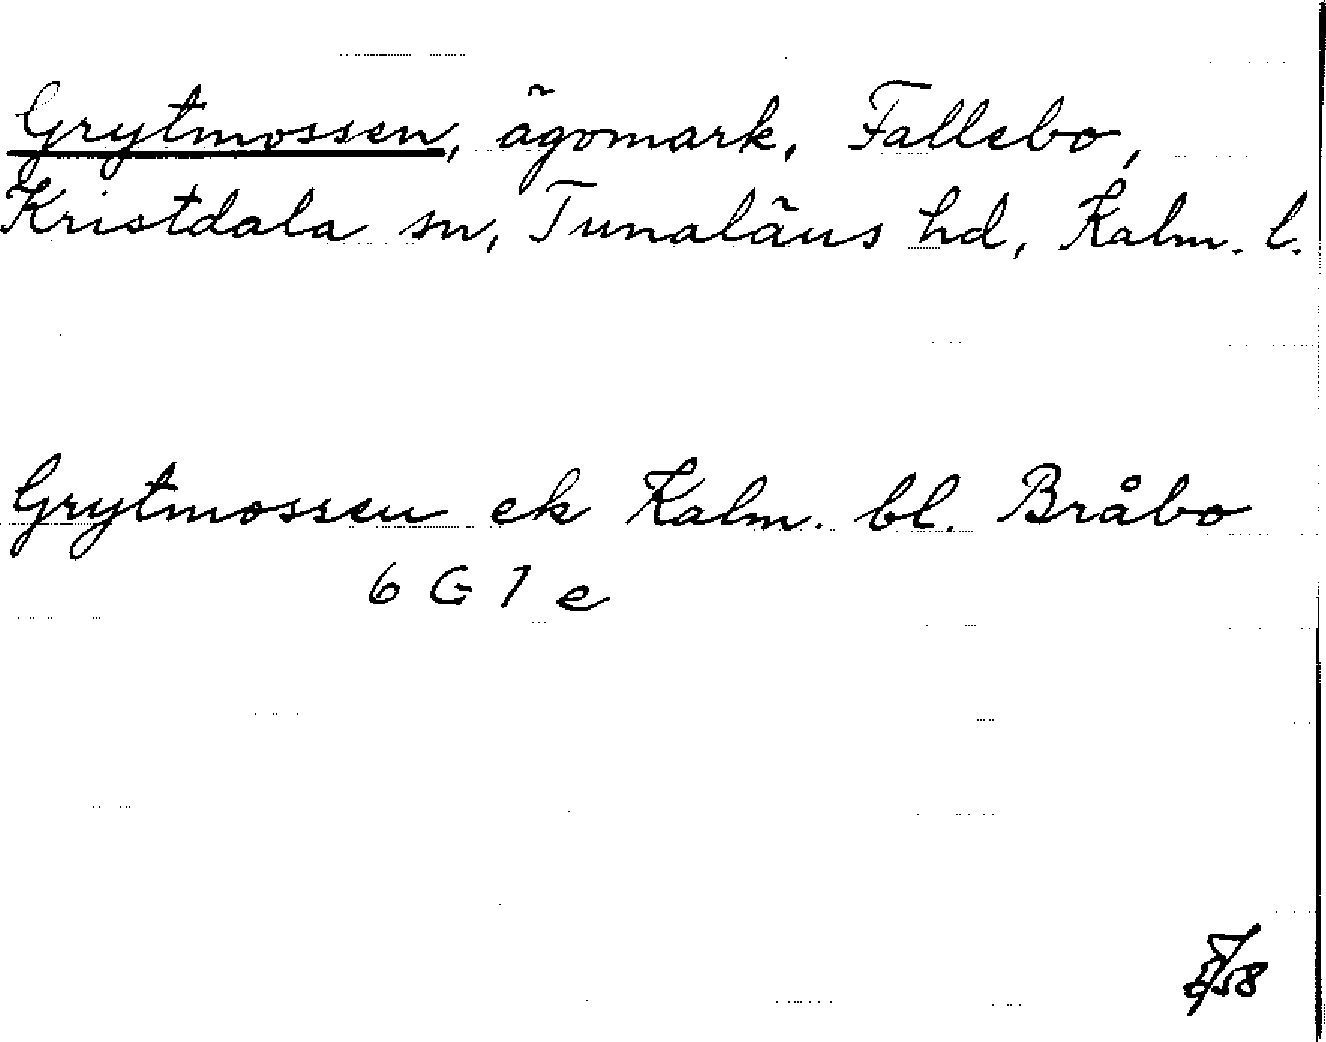 Grytmossen, ägomark, Fallebo,
Kristdala sn, Tunaläns hd, Kalm. l.
Grytmossen ek Kalm. bl. Bråbo
6 G 7 e